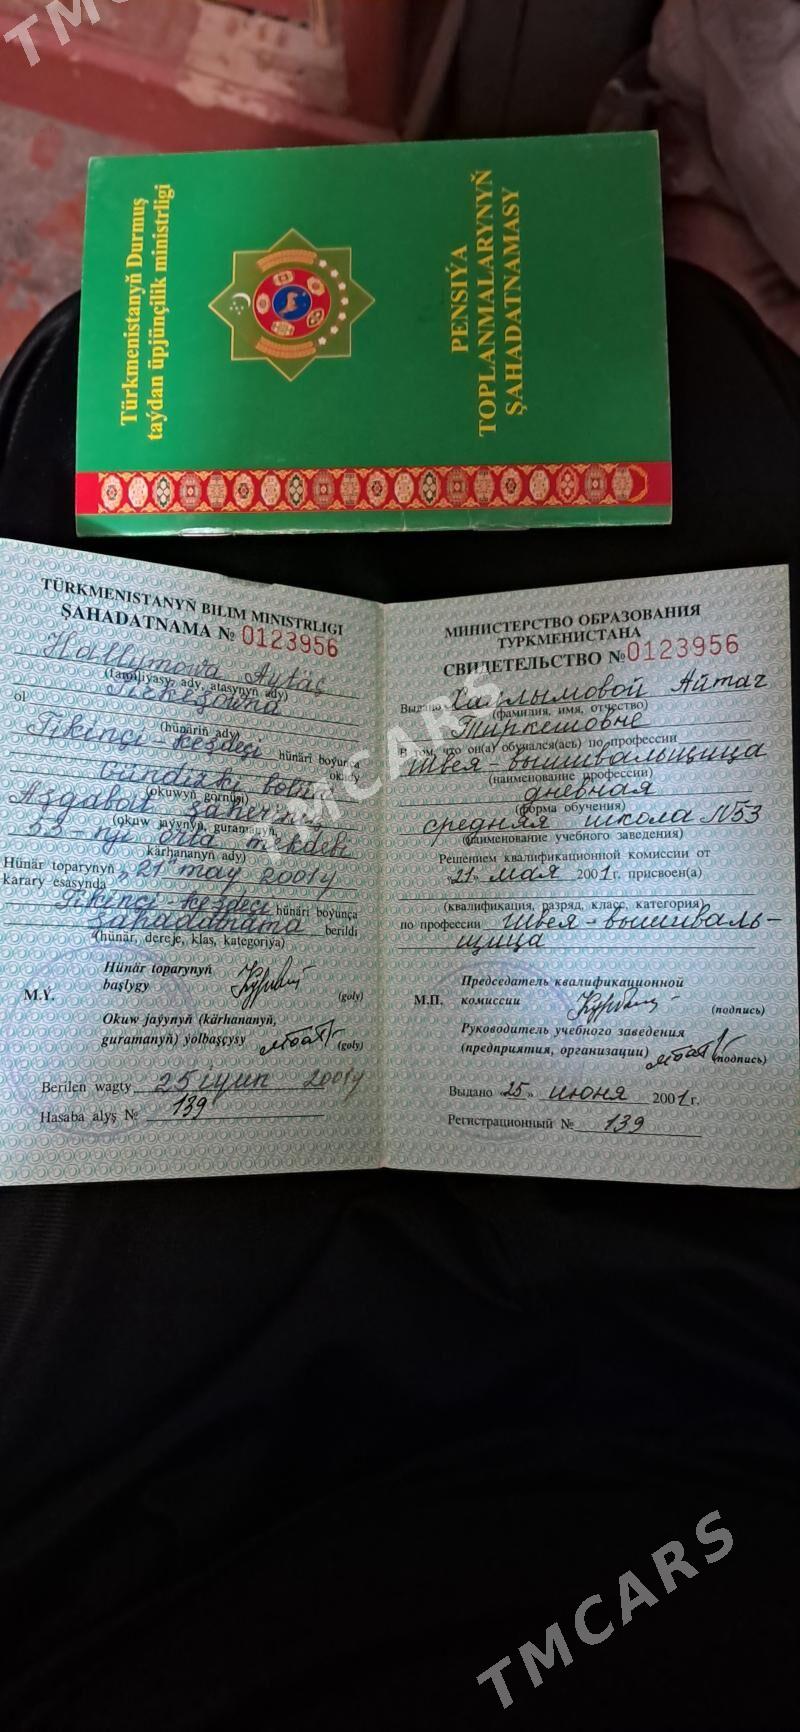 TMCARS
Türkmenistanyň Durmuş
taýdan üpjünçilik ministrligi
PENSIÝA
TOPLANMALARYNYŇ
ŞAHADATNAMASY
TÜRKMENISTANYŇ BILIM MINISTRLIGI
ŞAHADATNAMA № 0123956
Hallymowa Aýtäç
(familiýasy, ady, atasynyň ady)
ol
(hünäriň ady)
Tikinçi-keşdeçi hünäri boýunça
Gündizki bölüm okady
(okuwyň görnüşi)
Aşgabat şäheriniň
(okuw jaýynyň, guramanyň,
53-nji orta mekdebi
kärhananyň ady)
Hünär toparynyň „21 maý 2001ý
karary esasynda
Tikinçi-keşdeçi hünäri boýunça
şahadatnama berildi
(hünär, dereje, klas, kategoriýa)
Hünär toparynyň
başlygy (goly)
M.Ý.
Okuw jaýynyň (kärhananyň,
guramanyň) ýolbaşçysy (goly)
Berilen wagty 25 iýun 2001ý
Hasaba alyş № 139
МИНИСТЕРСТВО ОБРАЗОВАНИЯ
ТУРКМЕНИСТАНА
СВИДЕТЕЛЬСТВО № 0123956
Выдано Халлымовой Айтач
(фамилия, имя, отчество)
Тиркешовне
В том, что он(а) обучался(ась) по профессии
Швея-вышивальщица
(наименование профессии)
дневная
(форма обучения)
средняя школа N53
(наименование учебного заведения)
Решением квалификационной комиссии от
«21» мая 2001г. присвоен(а)
(квалификация, разряд, класс, категория)
по профессии Швея-вышиваль-
щица
Председатель квалификационной
М.П. комиссии (подпись)
Руководитель учебного заведения
(предприятия, организации) (подпись)
Выдано «25» июня 2001г.
Регистрационный № 139
TMCARS
TMCARS